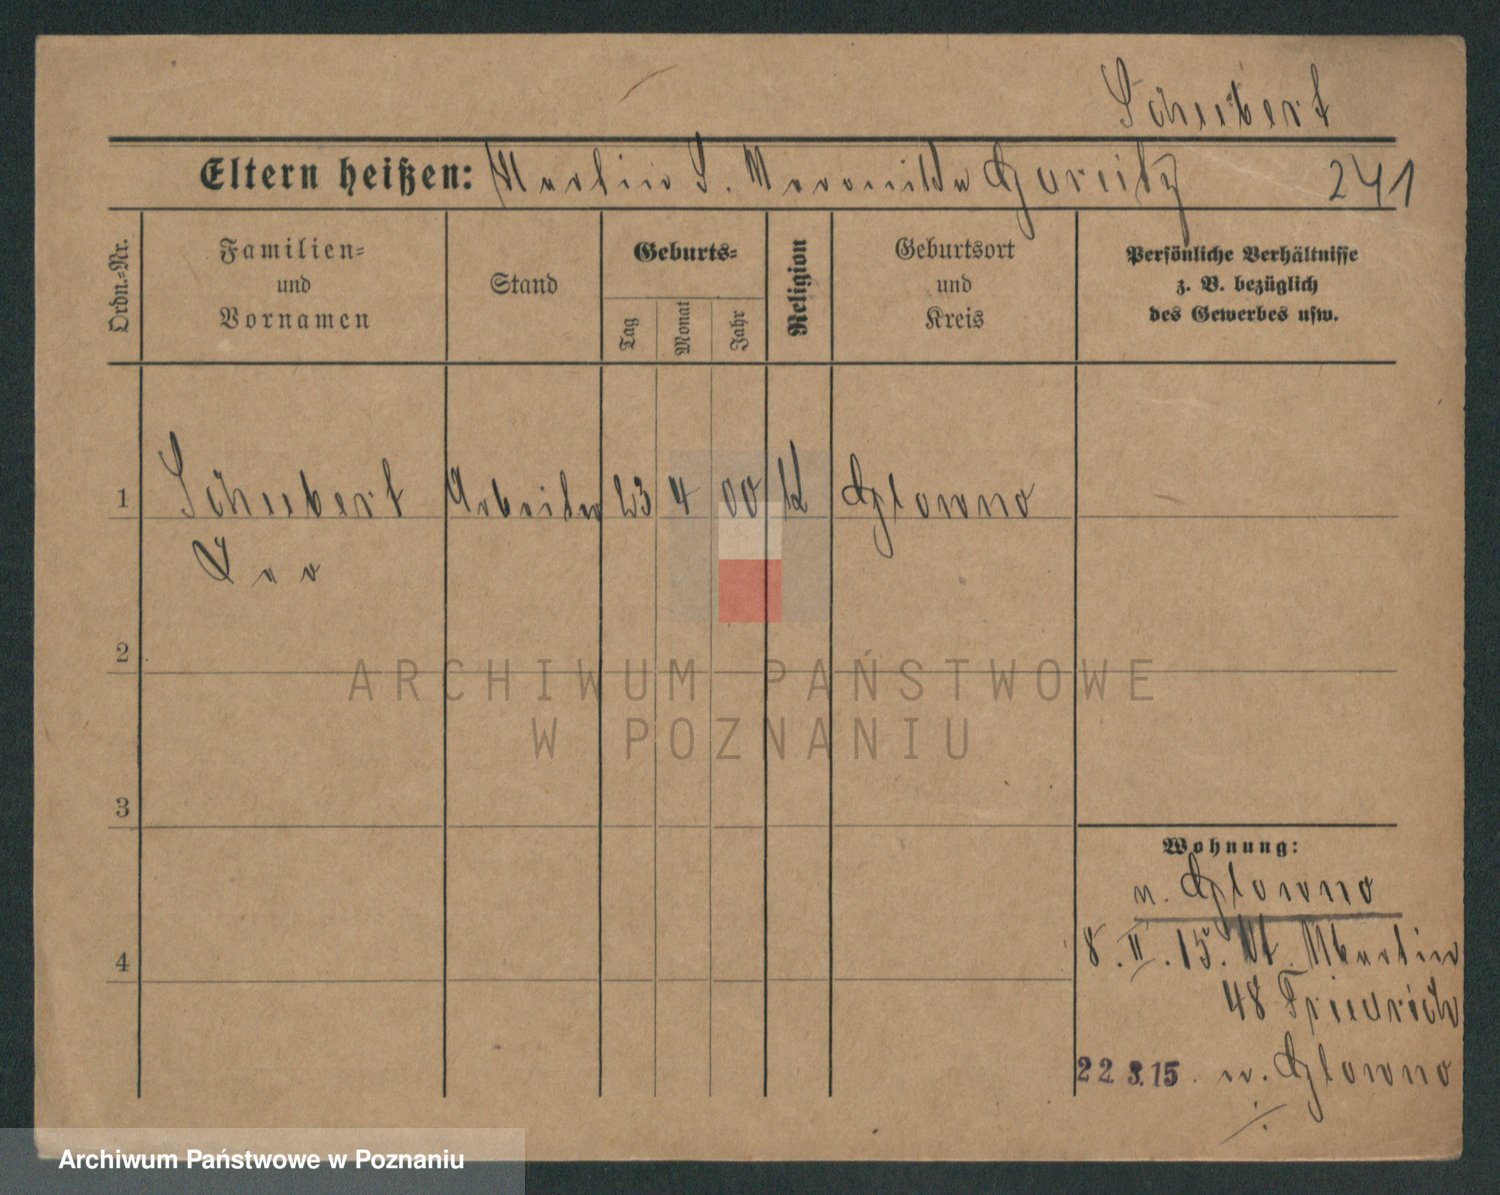 Schubert
Eltern heißen: Martin S. Veronika Gureitz 241
Ordn.-Nr.
Familien-
und
Vornamen
Stand
Geburts-
Tag
Monat
Jahr
Religion
Geburtsort
und
Kreis
Persönliche Verhältnisse
z. B. bezüglich
des Gewerbes usw.
1 Schubert Arbeiter 23 4 00 K Glowno
Leo
2
ARCHIWUM PAŃSTWOWE
W POZNANIU
3
Wohnung:
n. Glowno
4
8. II. 15. St. Martin
48 Friedrich
22 3.15 n. Glowno
Archiwum Państwowe w Poznaniu